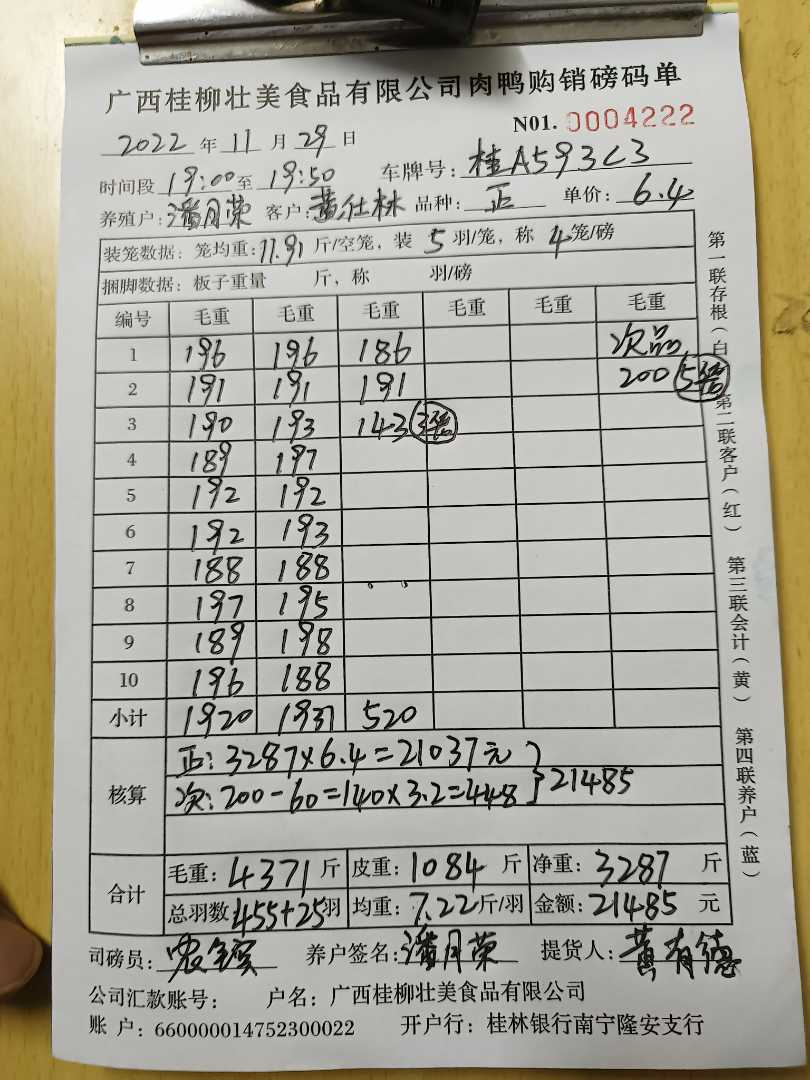 广西桂柳壮美食品有限公司肉鸭购销磅码单
NO1. 0004222
2022 年 11 月 29 日
时间段 19:00 至 19:50 车牌号: 桂A593C3
养殖户: 潘月荣 客户: 黄仕林 品种: 正 单价: 6.4
装笼数据: 笼均重: 11.91 斤/空笼, 装 5 羽/笼, 称 4 笼/磅
捆脚数据: 板子重量 斤, 称 羽/磅
编号 毛重 毛重 毛重 毛重 毛重 毛重
1 196 196 186 次品
2 191 191 191 200 5笼
3 190 193 143 3笼
4 189 197
5 192 192
6 192 193
7 188 188
8 197 195
9 189 198
10 196 188
小计 1920 1931 520
核算
正: 3287×6.4=21037元
次: 200-60=140×3.2=448 } 21485
合计
毛重: 4371 斤 皮重: 1084 斤 净重: 3287 斤
总羽数 455+25 羽 均重: 7.22 斤/羽 金额: 21485 元
司磅员: 养户签名: 潘月荣 提货人: 黄有德
公司汇款账号: 户名: 广西桂柳壮美食品有限公司
账 户: 660000014752300022 开户行: 桂林银行南宁隆安支行
第一联存根(白)
第二联客户(红)
第三联会计(黄)
第四联养户(蓝)